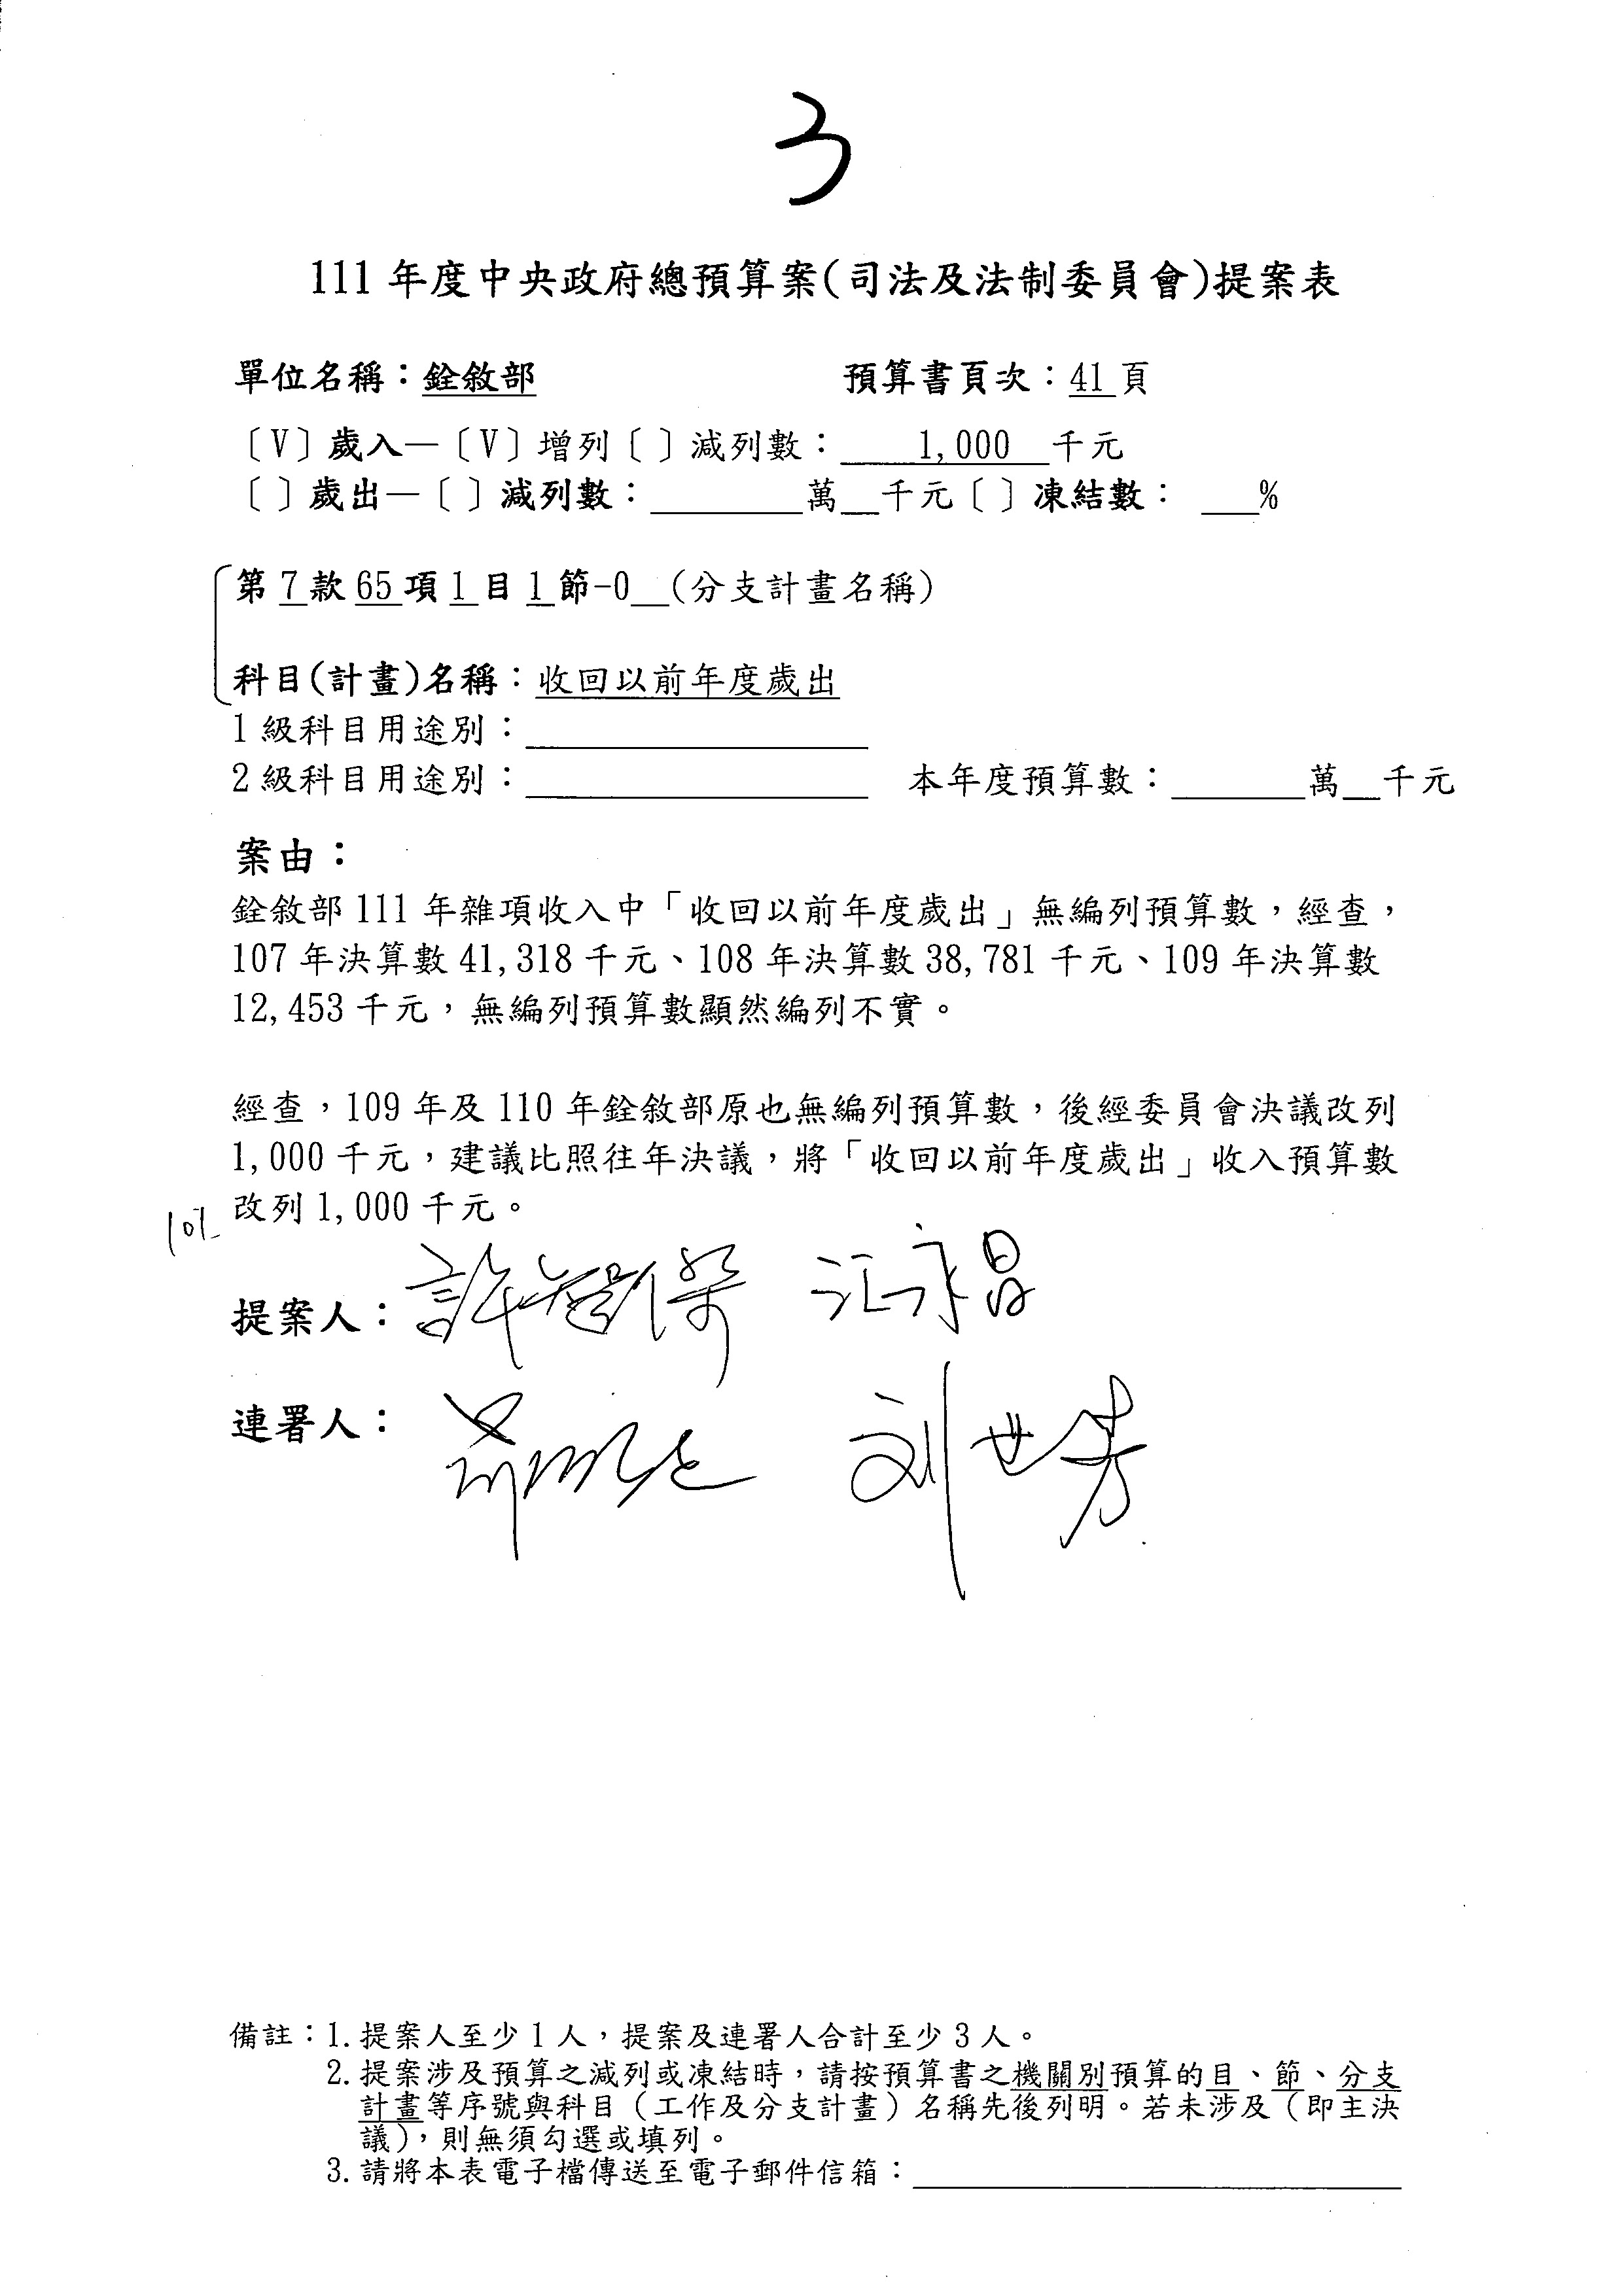 3
111 年度中央政府總預算案(司法及法制委員會)提案表
單位名稱：銓敘部 預算書頁次：41 頁
〔V〕歲入—〔V〕增列〔 〕減列數： 1,000 千元
〔 〕歲出—〔 〕減列數：________萬__千元〔 〕凍結數： ___%
第 7 款 65 項 1 目 1 節-0__(分支計畫名稱)
科目(計畫)名稱：收回以前年度歲出
1 級科目用途別：__________________
2 級科目用途別：__________________ 本年度預算數：_______萬__千元
案由：
銓敘部 111 年雜項收入中「收回以前年度歲出」無編列預算數，經查，
107 年決算數 41,318 千元、108 年決算數 38,781 千元、109 年決算數
12,453 千元，無編列預算數顯然編列不實。
經查，109 年及 110 年銓敘部原也無編列預算數，後經委員會決議改列
1,000 千元，建議比照往年決議，將「收回以前年度歲出」收入預算數
改列 1,000 千元。
提案人：許智傑 江永昌
連署人： 刘世芳
備註：1.提案人至少 1 人，提案及連署人合計至少 3 人。
2.提案涉及預算之減列或凍結時，請按預算書之機關別預算的目、節、分支
計畫等序號與科目（工作及分支計畫）名稱先後列明。若未涉及（即主決
議），則無須勾選或填列。
3.請將本表電子檔傳送至電子郵件信箱：__________________________